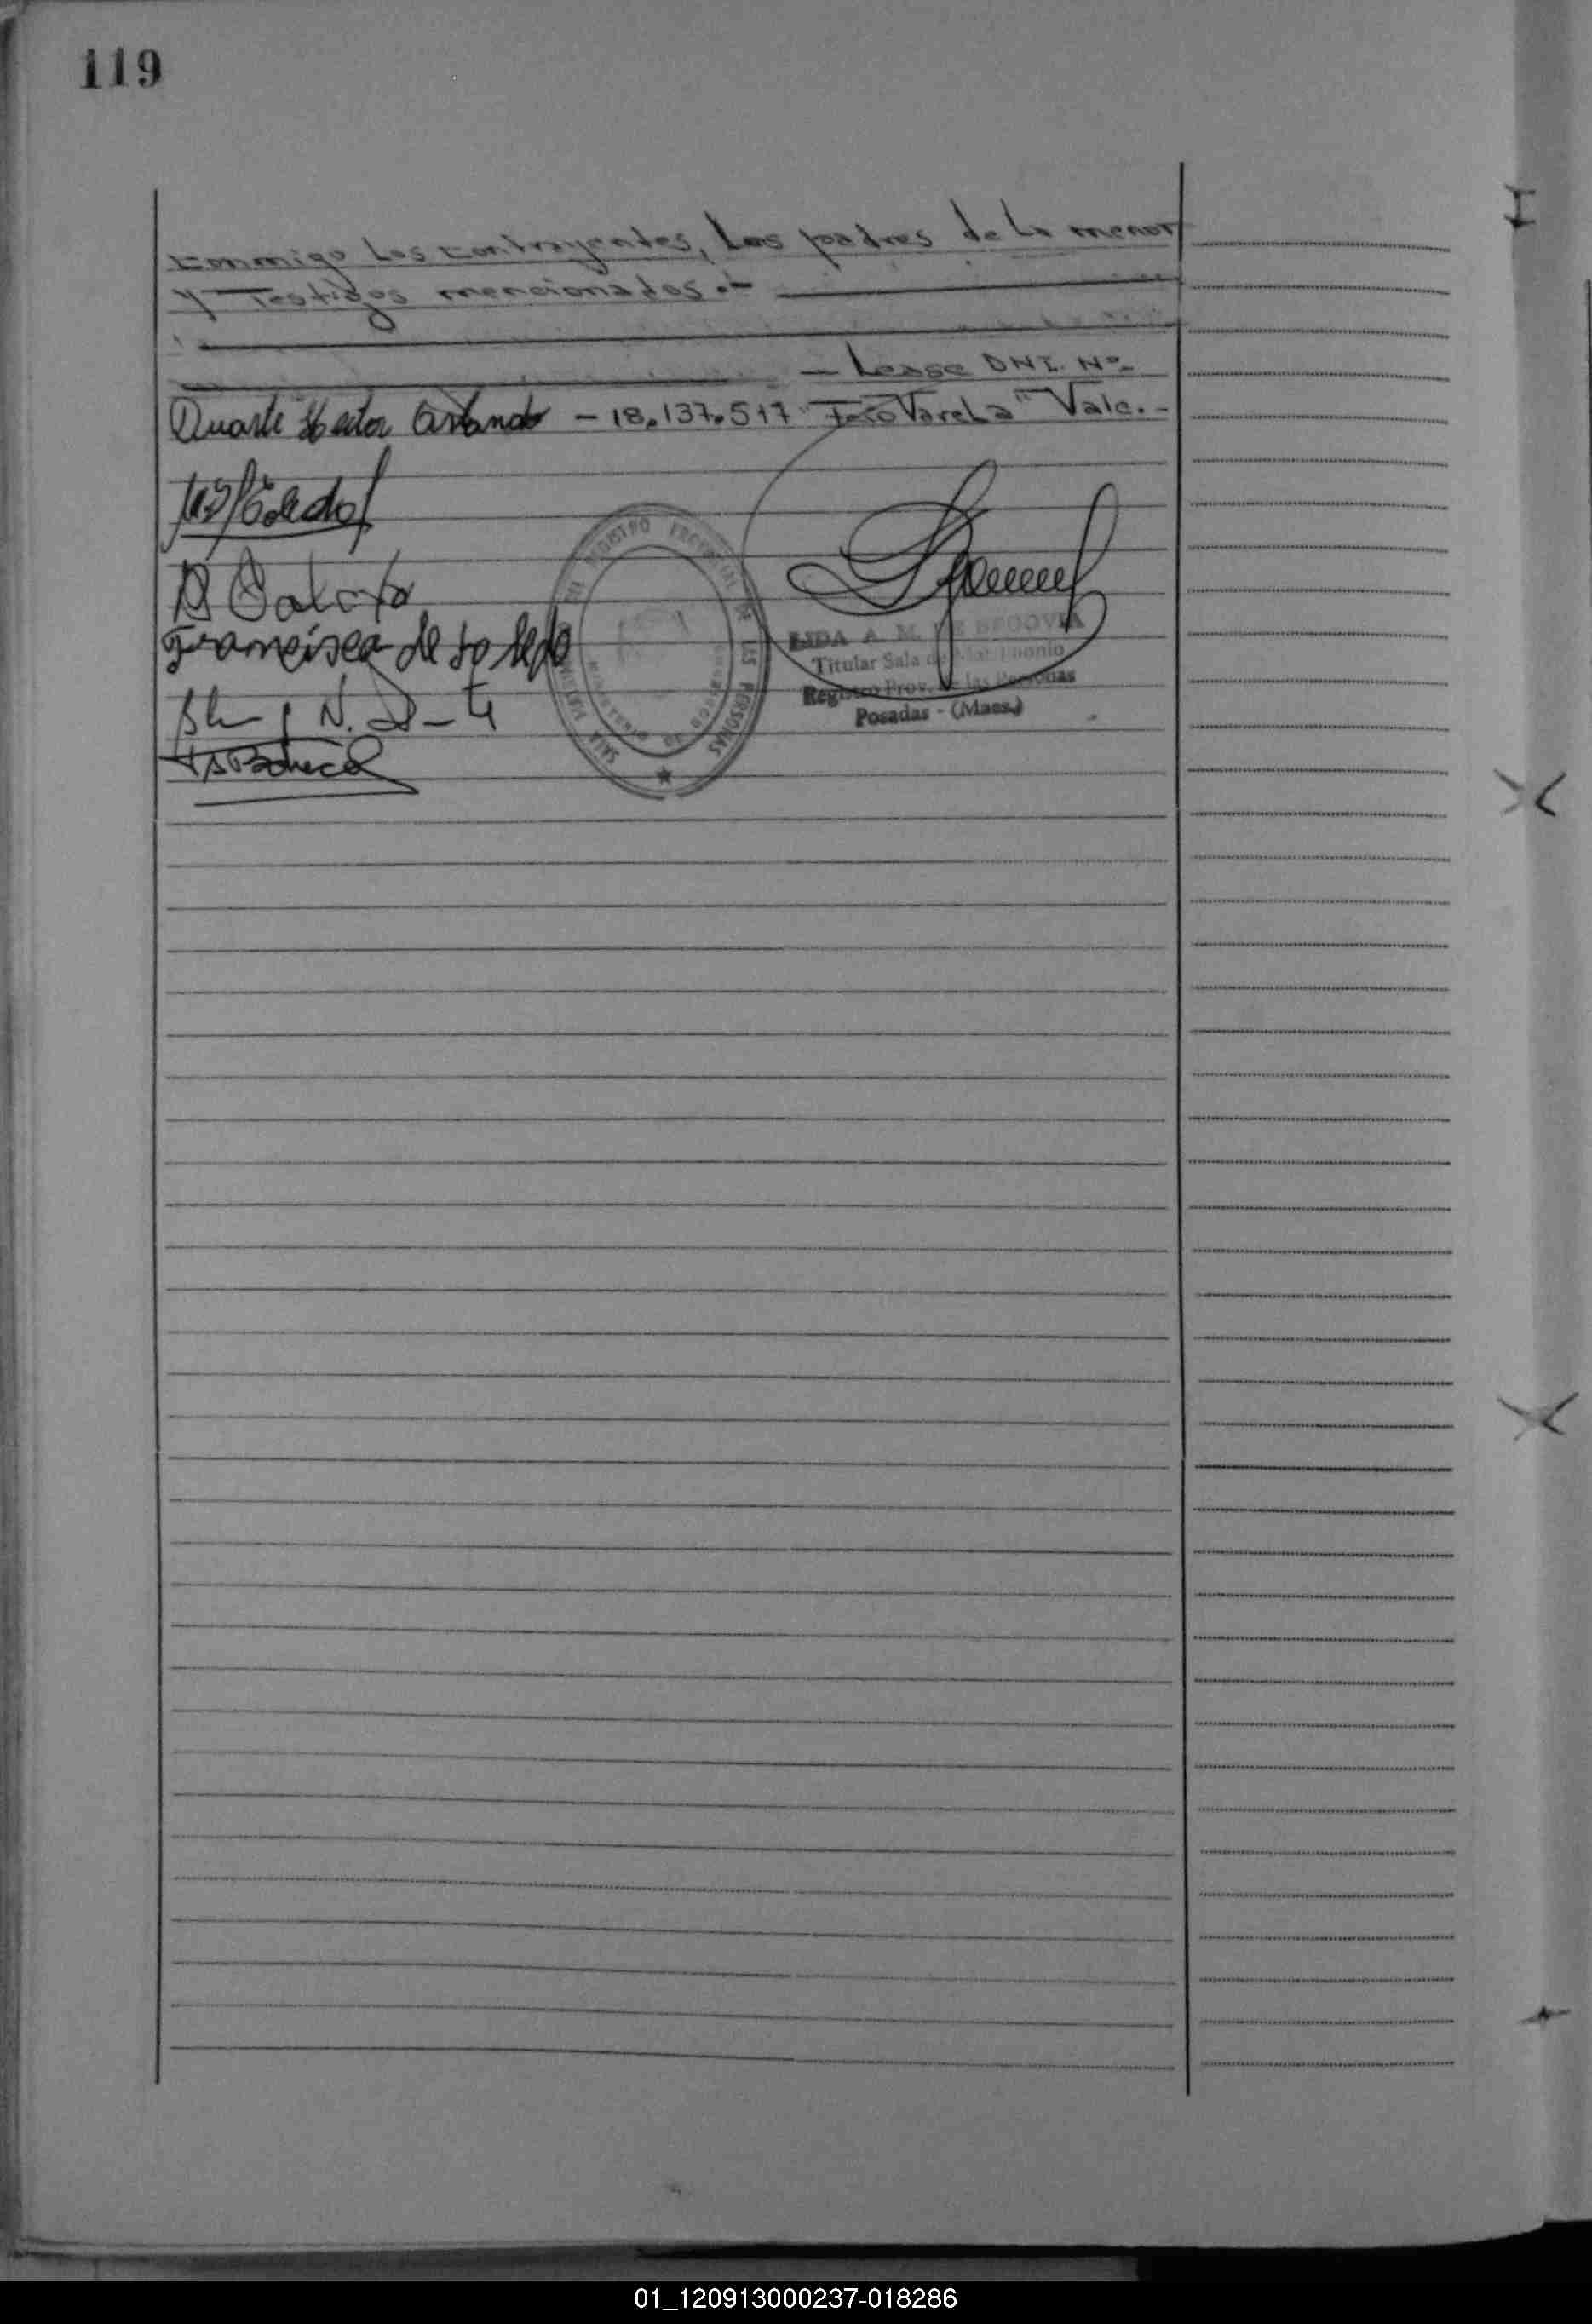 119
conmigo los contrayentes, Los padres de La menor
y Testigos mencionados.-
- Lease DNI. Nº
Duarte Hector Orlando - 18.137.517 "Fco Varela" Vale.-
Toledo
Francisca de toledo
N.
SALA MATRIMONIO DEL REGISTRO PROVINCIAL DE LAS PERSONAS
MINISTERIO DE GOBIERNO
LIDA A. M. DE SEGOVIA
Titular Sala de Matrimonio
Registro Prov. de las Personas
Posadas - (Mnes.)
01_120913000237-018286